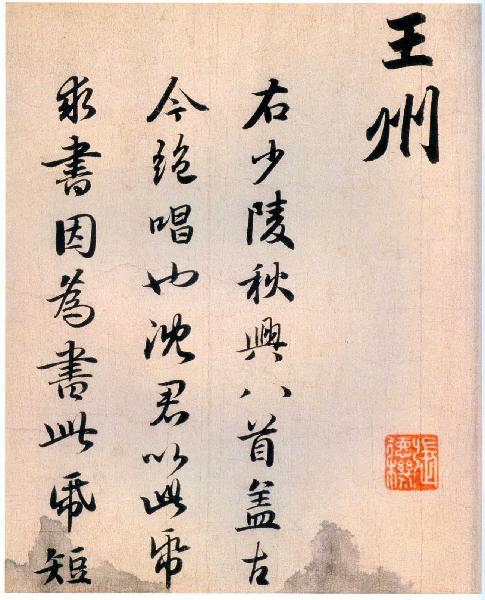 王州
右少陵秋興八首盖古
今絶唱也沈君以此帋
求書因為書此帋短
張德機